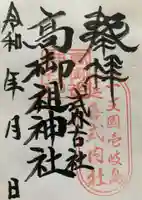 奉拝
式内古社
高御祖神社
令和 年 月 日
壱岐
式内社